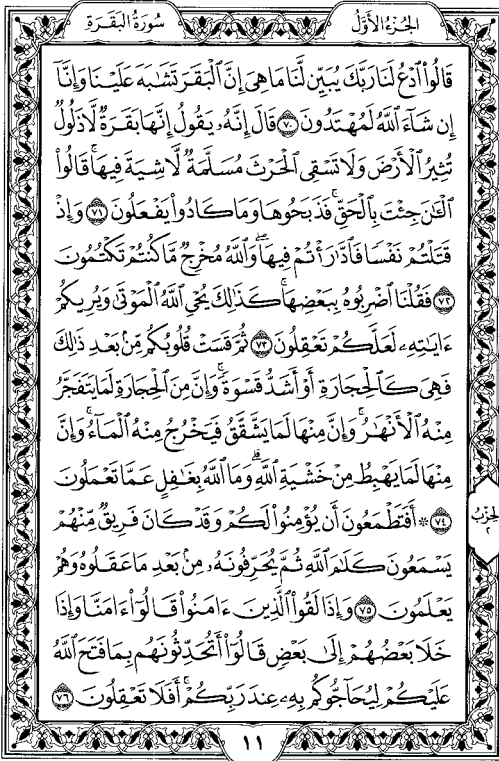 سُورَةُ البَقَرَةِ
الجُزْءُ الأَوَّلُ
قَالُواْ ٱدۡعُ لَنَا رَبَّكَ يُبَيِّن لَّنَا مَا هِيَ إِنَّ ٱلۡبَقَرَ تَشَٰبَهَ عَلَيۡنَا وَإِنَّآ
إِن شَآءَ ٱللَّهُ لَمُهۡتَدُونَ ٧٠ قَالَ إِنَّهُۥ يَقُولُ إِنَّهَا بَقَرَةٞ لَّا ذَلُولٞ
تُثِيرُ ٱلۡأَرۡضَ وَلَا تَسۡقِي ٱلۡحَرۡثَ مُسَلَّمَةٞ لَّا شِيَةَ فِيهَاۚ قَالُواْ
ٱلۡـَٰٔنَ جِئۡتَ بِٱلۡحَقِّۚ فَذَبَحُوهَا وَمَا كَادُواْ يَفۡعَلُونَ ٧١ وَإِذۡ
قَتَلۡتُمۡ نَفۡسٗا فَٱدَّٰرَٰٔتُمۡ فِيهَاۖ وَٱللَّهُ مُخۡرِجٞ مَّا كُنتُمۡ تَكۡتُمُونَ
٧٢ فَقُلۡنَا ٱضۡرِبُوهُ بِبَعۡضِهَاۚ كَذَٰلِكَ يُحۡيِ ٱللَّهُ ٱلۡمَوۡتَىٰ وَيُرِيكُمۡ
ءَايَٰتِهِۦ لَعَلَّكُمۡ تَعۡقِلُونَ ٧٣ ثُمَّ قَسَتۡ قُلُوبُكُم مِّنۢ بَعۡدِ ذَٰلِكَ
فَهِيَ كَٱلۡحِجَارَةِ أَوۡ أَشَدُّ قَسۡوَةٗۚ وَإِنَّ مِنَ ٱلۡحِجَارَةِ لَمَا يَتَفَجَّرُ
مِنۡهُ ٱلۡأَنۡهَٰرُۚ وَإِنَّ مِنۡهَا لَمَا يَشَّقَّقُ فَيَخۡرُجُ مِنۡهُ ٱلۡمَآءُۚ وَإِنَّ
مِنۡهَا لَمَا يَهۡبِطُ مِنۡ خَشۡيَةِ ٱللَّهِۗ وَمَا ٱللَّهُ بِغَٰفِلٍ عَمَّا تَعۡمَلُونَ
٧٤ ۞ أَفَتَطۡمَعُونَ أَن يُؤۡمِنُواْ لَكُمۡ وَقَدۡ كَانَ فَرِيقٞ مِّنۡهُمۡ
الحِزْبُ
٢
يَسۡمَعُونَ كَلَٰمَ ٱللَّهِ ثُمَّ يُحَرِّفُونَهُۥ مِنۢ بَعۡدِ مَا عَقَلُوهُ وَهُمۡ
يَعۡلَمُونَ ٧٥ وَإِذَا لَقُواْ ٱلَّذِينَ ءَامَنُواْ قَالُوٓاْ ءَامَنَّا وَإِذَا
خَلَا بَعۡضُهُمۡ إِلَىٰ بَعۡضٖ قَالُوٓاْ أَتُحَدِّثُونَهُم بِمَا فَتَحَ ٱللَّهُ
عَلَيۡكُمۡ لِيُحَآجُّوكُم بِهِۦ عِندَ رَبِّكُمۡۚ أَفَلَا تَعۡقِلُونَ ٧٦
١١